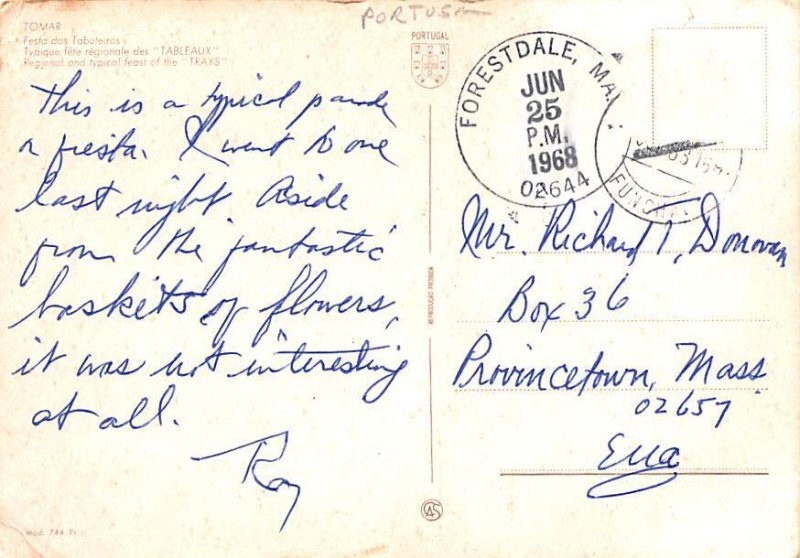 PORTUGA
TOMAR
Festa dos Tabuleiros
Typique fête régionale des "TABLEAUX"
Regional and typical feast of the "TRAYS"
PORTUGAL
This is a typical parade
a fiesta. I went to one
last night. Aside
from the fantastic
baskets of flowers,
it was not interesting
at all.
Roy
FORESTDALE, MA
JUN
25
P.M.
1968
02644
FUNCHAL
Mr. Richard T. Donovan
Box 36
Provincetown, Mass
02657
REPRODUÇÃO PROIBIDA
Mod. 744